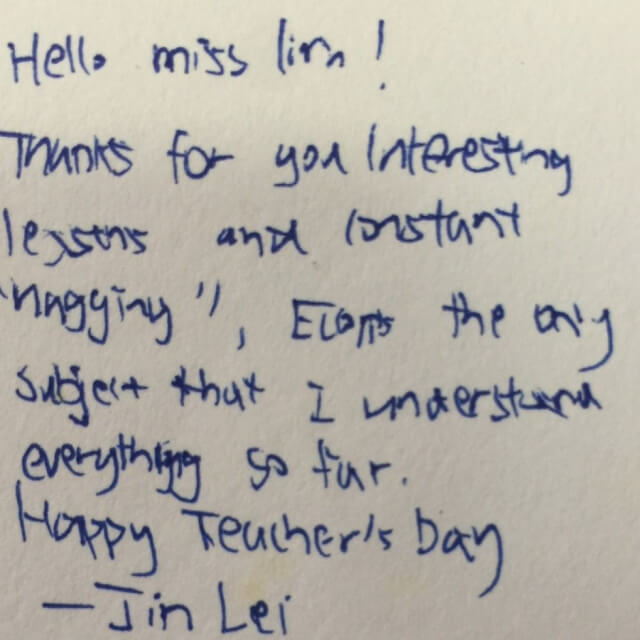 Hello miss lim !
Thanks for you Interesting
lessons and constant
"nagging", Econs the only
subject that I understand
everything so far.
Happy Teacher's Day
— Jin Lei